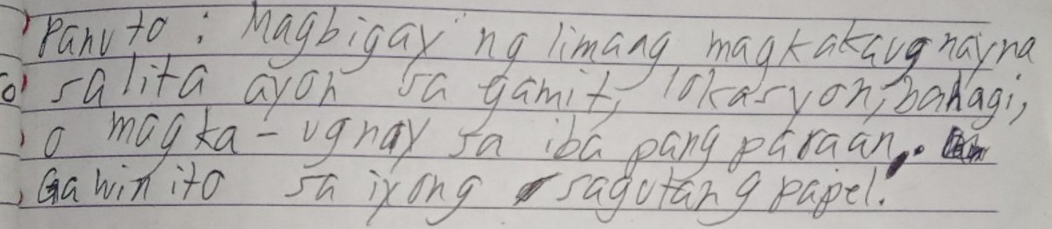 Panuto : Magbigay ng limang magkakaugnay na
salita ayon sa gamit, lokasyon, bahagi,
o magka - ugnay sa iba pang paraan.
Gawin ito sa iyong sagutang papel.